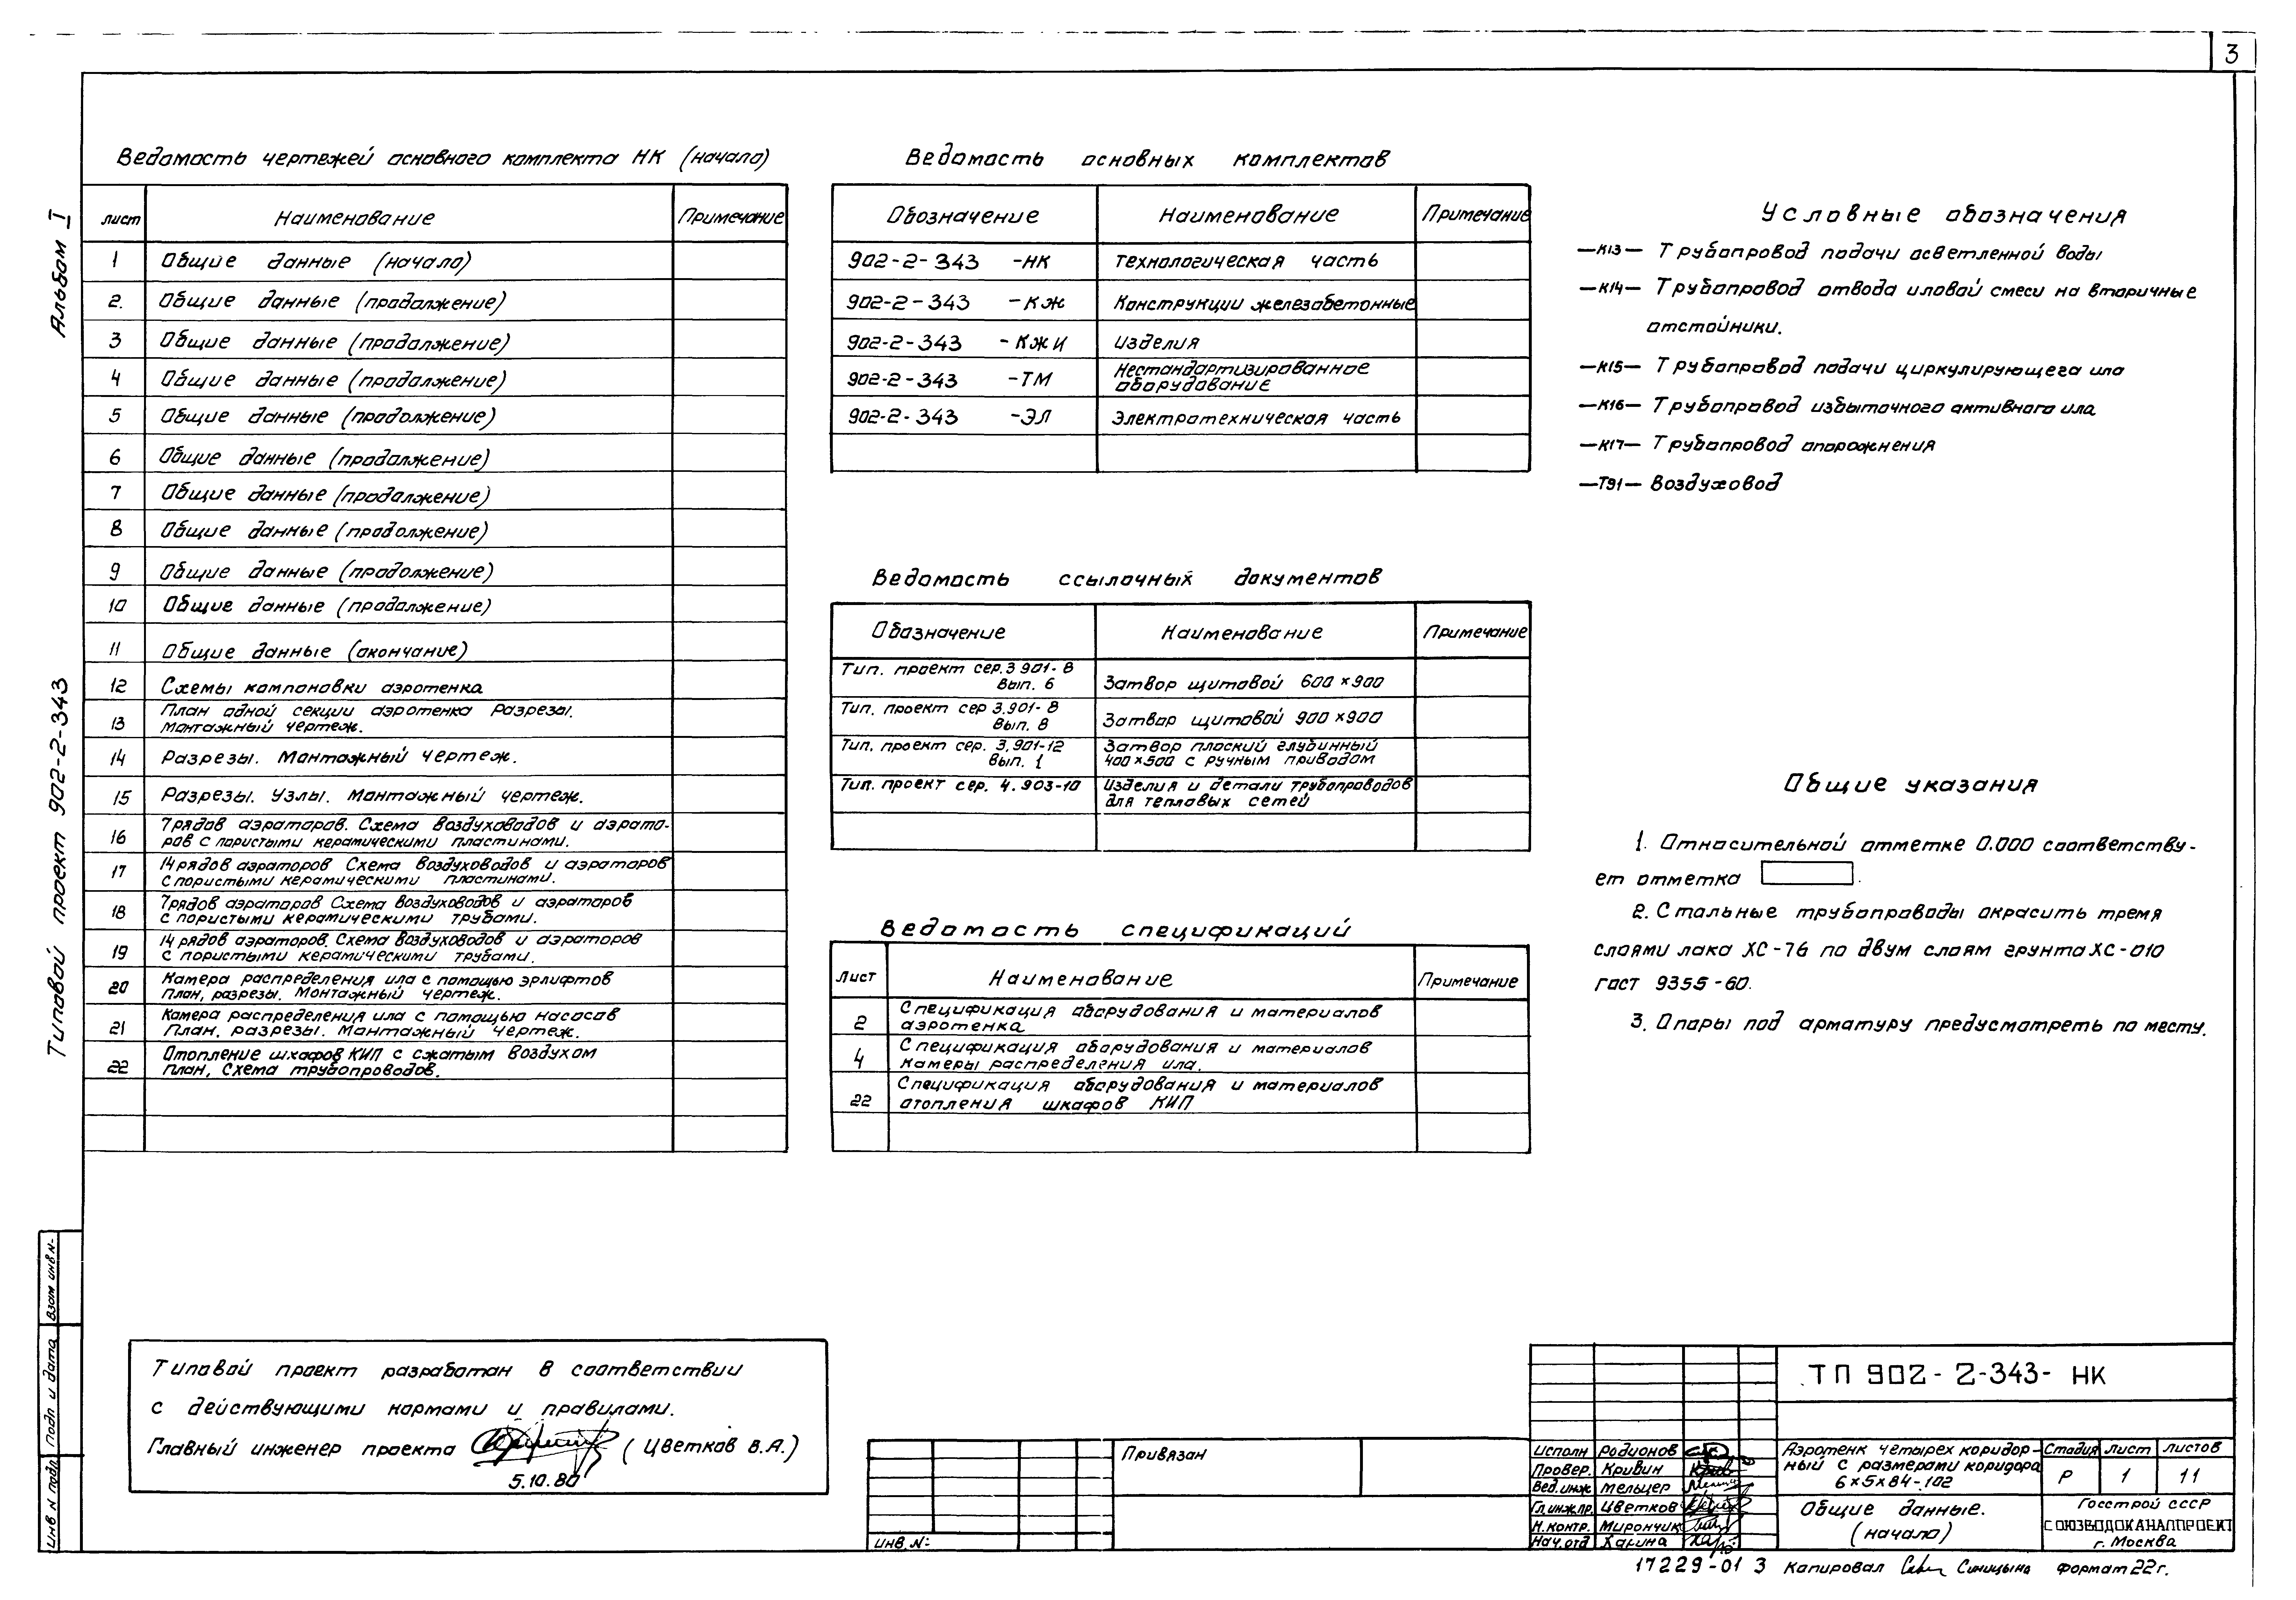 3
Альбом I
Типовой проект 902-2-343
Ведомость чертежей основного комплекта НК (начало)
лист Наименование Примечание
1 Общие данные (начало)
2. Общие данные (продолжение)
3 Общие данные (продолжение)
4 Общие данные (продолжение)
5 Общие данные (продолжение)
6 Общие данные (продолжение)
7 Общие данные (продолжение)
8 Общие данные (продолжение)
9 Общие данные (продолжение)
10 Общие данные (продолжение)
11 Общие данные (окончание)
12 Схемы компоновки аэротенка
13 План одной секции аэротенка Разрезы.
Монтажный чертеж.
14 Разрезы. Монтажный чертеж.
15 Разрезы. Узлы. Монтажный чертеж.
16 7рядов аэраторов. Схема воздуховодов и аэрато-
ров с пористыми керамическими пластинами.
17 14 рядов аэраторов Схема воздуховодов и аэраторов
с пористыми керамическими пластинами.
18 7рядов аэраторов Схема воздуховодов и аэраторов
с пористыми керамическими трубами.
19 14 рядов аэраторов. Схема воздуховодов и аэраторов
с пористыми керамическими трубами.
20 Камера распределения ила с помощью эрлифтов
План, разрезы. Монтажный чертеж.
21 Камера распределения ила с помощью насосов
План, разрезы. Монтажный чертеж.
22 Отопление шкафов КИП с сжатым воздухом
План, Схема трубопроводов.
Ведомость основных комплектов
Обозначение Наименование Примечание
902-2-343 -НК Технологическая часть
902-2-343 -КЖ Конструкции железобетонные
902-2-343 -КЖИ Изделия
902-2-343 -ТМ Нестандартизированное
оборудование
902-2-343 -ЭЛ Электротехническая часть
Ведомость ссылочных документов
Обозначение Наименование Примечание
Тип. проект сер.3 901-8
Вып. 6 Затвор щитовой 600×900
Тип. проект сер 3.901-8
Вып. 8 Затвор щитовой 900×900
Тип. проект сер. 3.901-12 Затвор плоский глубинный
Вып. 1 400×500 с ручным приводом
Тип. проект сер. 4.903-10 Изделия и детали трубопроводов
для тепловых сетей
Ведомость спецификаций
Лист Наименование Примечание
2 Спецификация оборудования и материалов
аэротенка
4 Спецификация оборудования и материалов
камеры распределения ила.
22 Спецификация оборудования и материалов
отопления шкафов КИП
Условные обозначения
—К13— Трубопровод подачи осветленной воды
—К14— Трубопровод отвода иловой смеси на вторичные
отстойники.
—К15— Трубопровод подачи циркулирующего ила
—К16— Трубопровод избыточного активного ила
—К17— Трубопровод опорожнения
—Т91— Воздуховод
Общие указания
1. Относительной отметке 0.000 соответству-
ет отметка .
2. Стальные трубопроводы окрасить тремя
слоями лака ХС-76 по двум слоям грунта ХС-010
гост 9355-60.
3. Опоры под арматуру предусмотреть по месту.
Типовой проект разработан в соответствии
с действующими нормами и правилами.
Главный инженер проекта (Цветков В.А.)
5.10.80
Инв N подл Подп и дата Взам инв.N-
Привязан
Инв. N-
ТП 902-2-343- НК
Исполн Родионов
Провер. Кривин
Вед.инж Мельцер
Гл.инж.пр. Цветков
Н.контр. Мирончик
Нач.отд Ханина
Аэротенк четырех коридор-
ный с размерами коридора
6×5×84-102
Стадия Лист Листов
Р 1 11
Общие данные.
(начало)
Госстрой СССР
СОЮЗВОДОКАНАЛПРОЕКТ
г. Москва
17229-01 3 Копировал Синицына формат 22г.